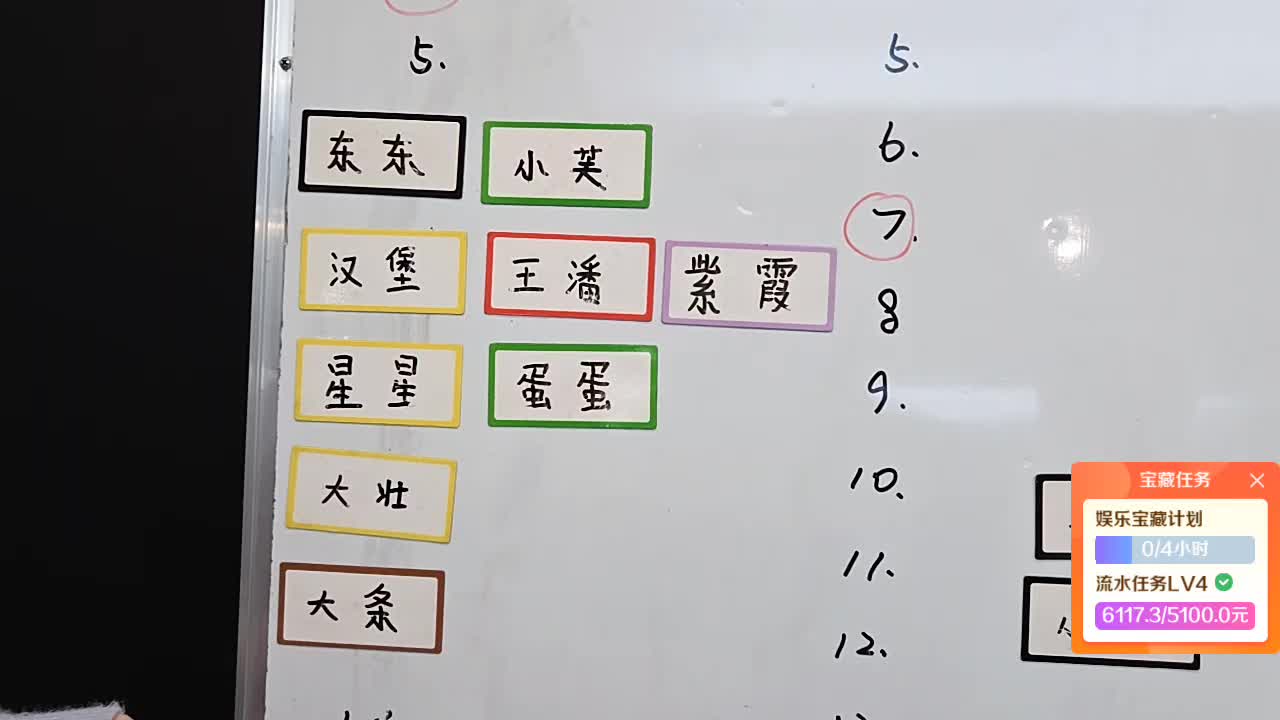 5.
东东 小芙
汉堡 王潘 紫霞
星星 蛋蛋
大壮
大条
5.
6.
7.
8
9.
10.
11.
12.
宝藏任务
娱乐宝藏计划
0/4小时
流水任务LV4
6117.3/5100.0元